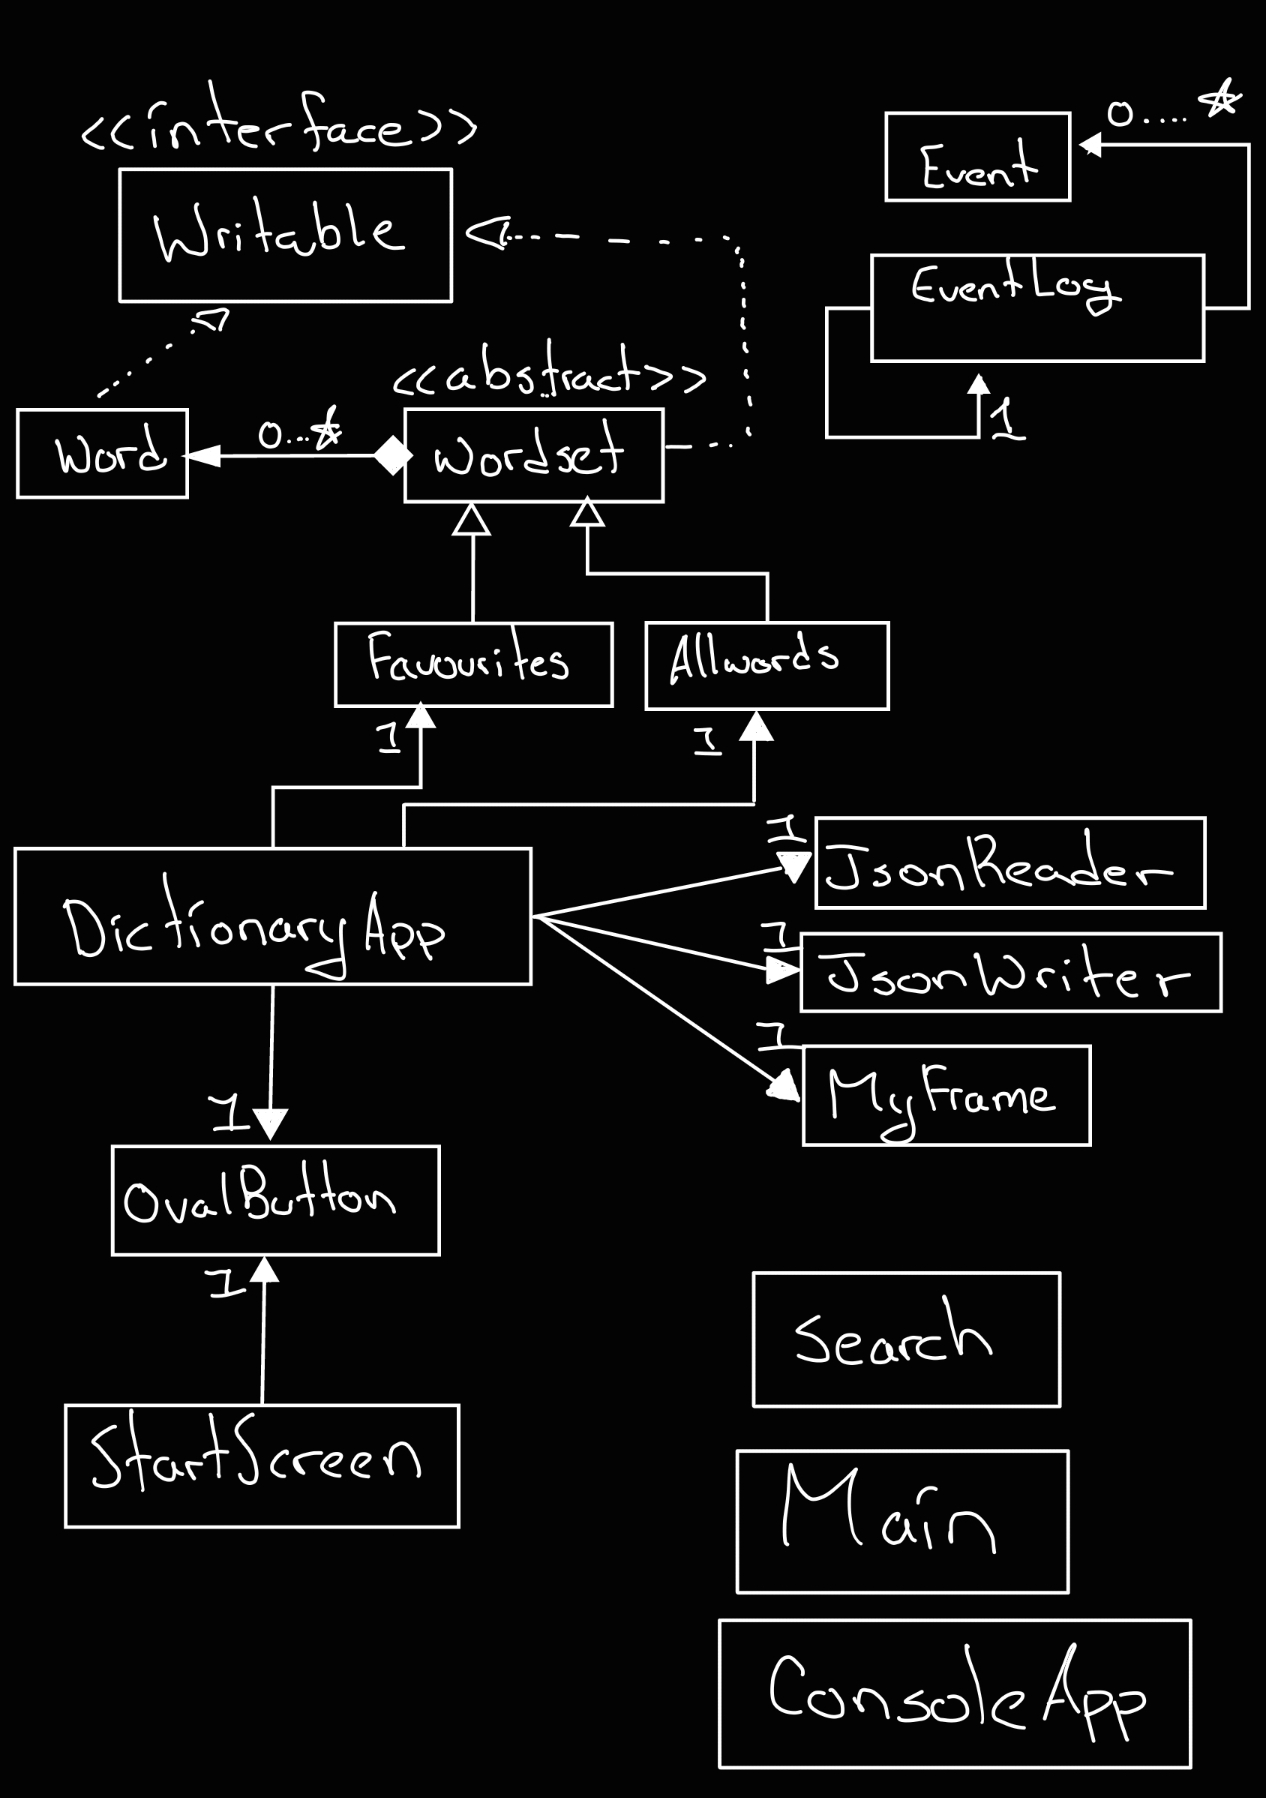 <<interface>>
Writable
0....*
Event
EventLog
1
<<abstract>>
Word
0...*
Wordset
Favourites
Allwords
1
1
DictionaryApp
1
JsonReader
1
JsonWriter
1
MyFrame
1
OvalButton
1
StartScreen
Search
Main
ConsoleApp